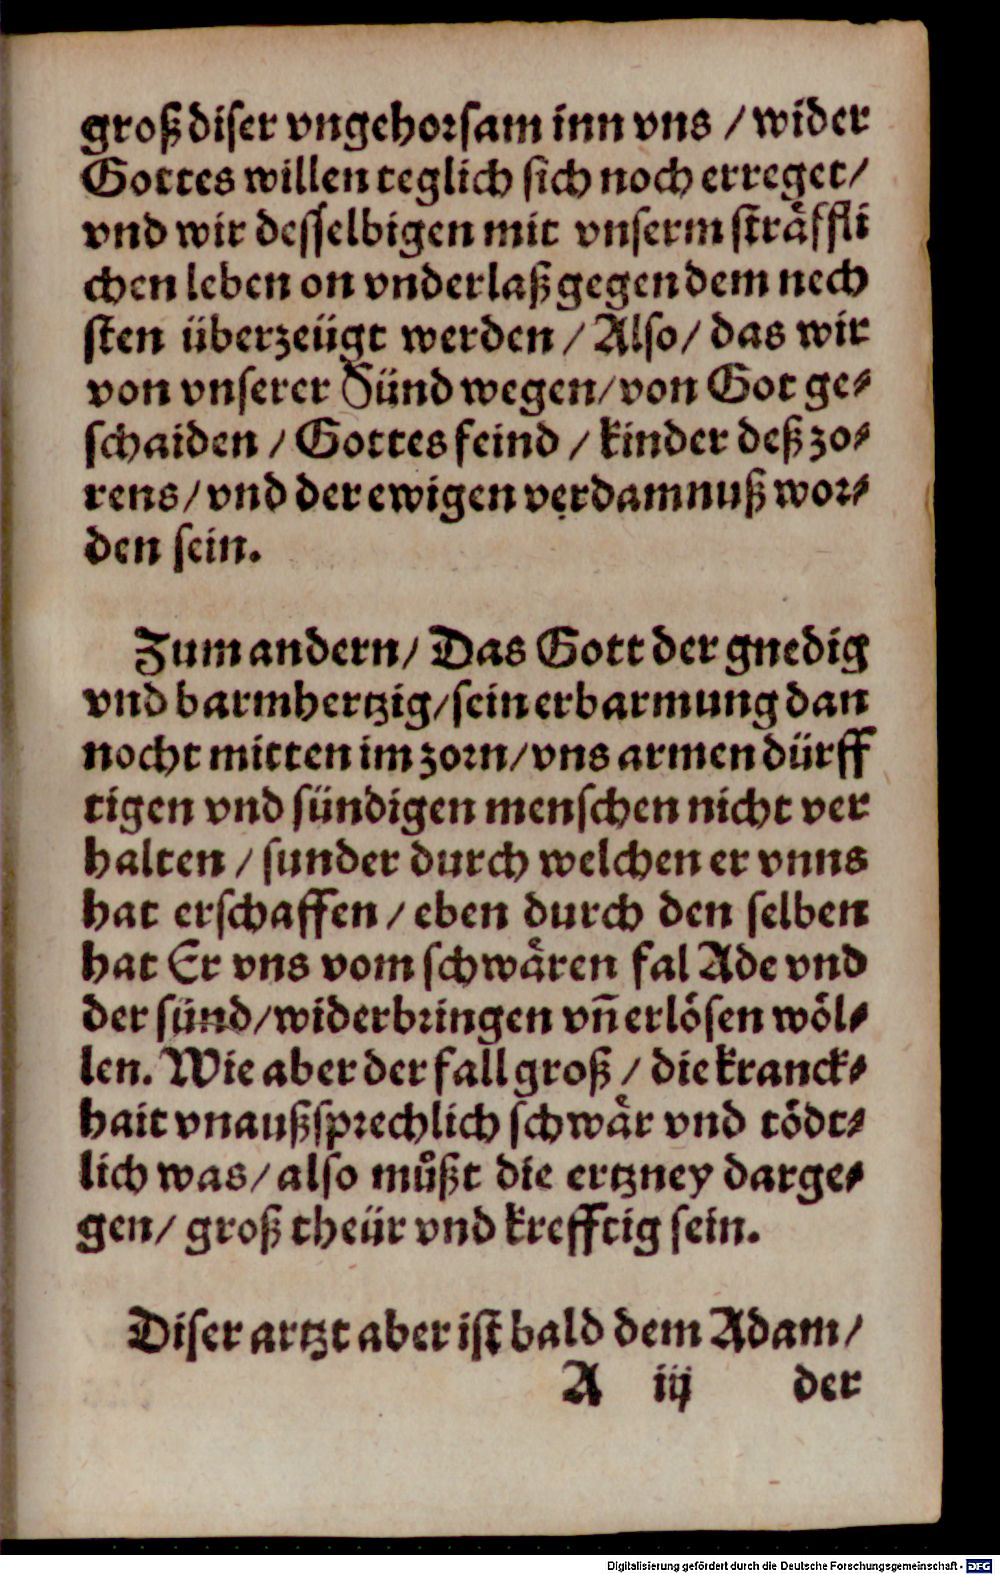 groß diser vngehorsam inn vns / wider
Gottes willen teglich sich noch erreget/
vnd wir desselbigen mit vnserm sträffli
chen leben on vnderlaß gegen dem nech
sten überzeügt werden / Also/ das wir
von vnserer Sünd wegen/von Got ge⸗
schaiden / Gottes feind / kinder deß zo⸗
rens/ vnd der ewigen verdamnuß wor⸗
den sein.
Zum andern/ Das Gott der gnedig
vnd barmhertzig/sein erbarmung dan
nocht mitten im zorn/vns armen dürff
tigen vnd sündigen menschen nicht ver
halten / sunder durch welchen er vnns
hat erschaffen / eben durch den selben
hat Er vns vom schwären fal Ade vnd
der sünd/widerbringen vñ erlösen wöl⸗
len. Wie aber der fall groß / die kranck⸗
hait vnaußsprechlich schwär vnd tödt⸗
lich was/ also můßt die ertzney darge⸗
gen/ groß theür vnd krefftig sein.
Diser artzt aber ist bald dem Adam/
A iij der
Digitalisierung gefördert durch die Deutsche Forschungsgemeinschaft - DFG